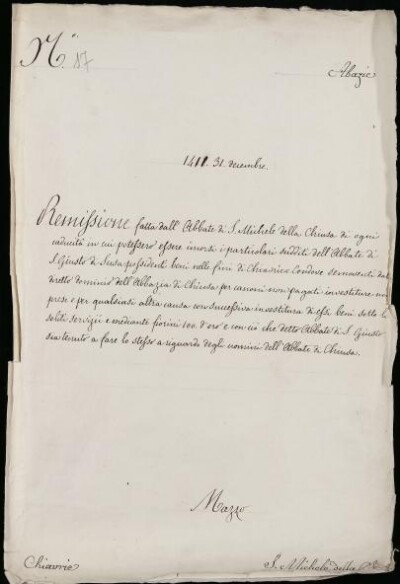 N.° 17
Abazie
1411. 31. decembre.
Remissione fatta dall' Abbate di S. Michele della Chiusa di ogni
caducità in cui potessero essere incorsi i particolari sudditi dell' Abbate di
S. Giusto di Susa possidenti beni nelle fini di Chiavrie e Condove
diretto dominio dell' Abbazia di Chiusa per canoni non pagati investiture non
prese e per qualsivoglia altra causa con successiva investitura di essi beni sotto li
soliti servizii e mediante fiorini d'oro e con ciò che detto Abbate di S. Giusto
sia tenuto a fare lo stesso a riguardo degli uomini dell' Abbate di Chiusa.
Mazzo
Chiavrie
S. Michele della